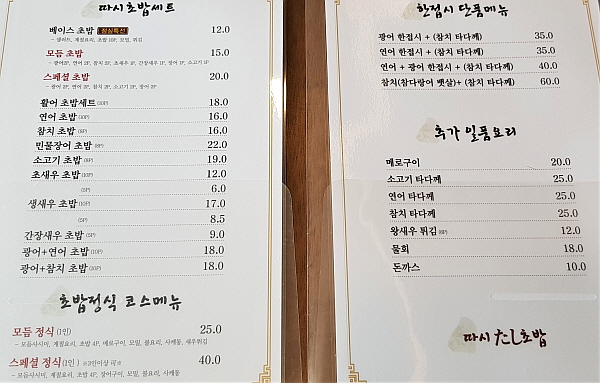 따시초밥세트
베이스 초밥 점심특선 12.0
모듬 초밥 15.0
스페셜 초밥 20.0
활어 초밥세트 (10P) 18.0
연어 초밥 (10P) 16.0
참치 초밥 (8P) 16.0
민물장어 초밥 (8P) 22.0
소고기 초밥 (8P) 19.0
초새우 초밥 (10P) 12.0
(5P) 6.0
생새우 초밥 (10P) 17.0
(5P) 8.5
간장새우 초밥 (5P) 9.0
광어+연어 초밥 (10P) 18.0
광어+참치 초밥 (10P) 18.0
초밥정식 코스메뉴
모듬 정식 (1인) 25.0
- 모듬사시미, 계절요리, 초밥 4P, 메로구이, 모밀, 볼요리, 사케동, 새우튀김
스페셜 정식 (1인) ※2인이상 可 40.0
- 모듬사시미, 계절요리, 초밥 4P, 장어구이, 모밀, 볼요리, 사케동
한접시 단품메뉴
광어 한접시 + (참치 타다께) 35.0
연어 한접시 + (참치 타다께) 35.0
연어 + 광어 한접시 + (참치 타다께) 40.0
참치(참다랑어 뱃살)+ (참치 타다께) 60.0
추가 일품요리
메로구이 20.0
소고기 타다께 25.0
연어 타다께 25.0
참치 타다께 25.0
왕새우 튀김 (6P) 12.0
물회 18.0
돈까스 10.0
따시 たし초밥